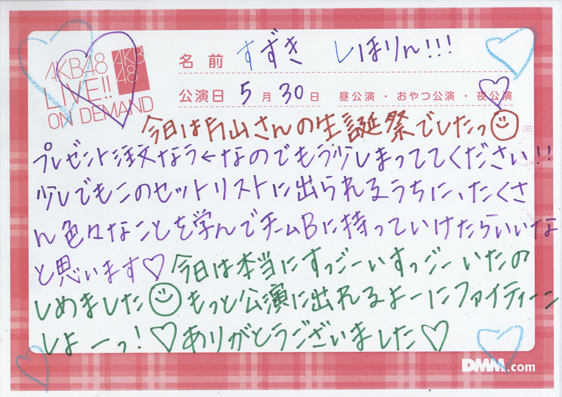 AKB48
LIVE!!
ON DEMAND
AKB
48
名前 すずき しほりん!!!
公演日 5月30日 昼公演・おやつ公演・夜公演
今日は片山さんの生誕祭でしたっ
プレゼント注文なう←なのでもう少しまっててください!!
少しでもこのセットリストに出られるうちに、たくさ
ん色々なことを学んでチームBに持っていけたらいいな
と思います♡今日は本当にすっごーいすっごーいたの
しめました もっと公演に出れるよーにファイティーン
しよーっ!♡ありがとうございました♡
DMM.com